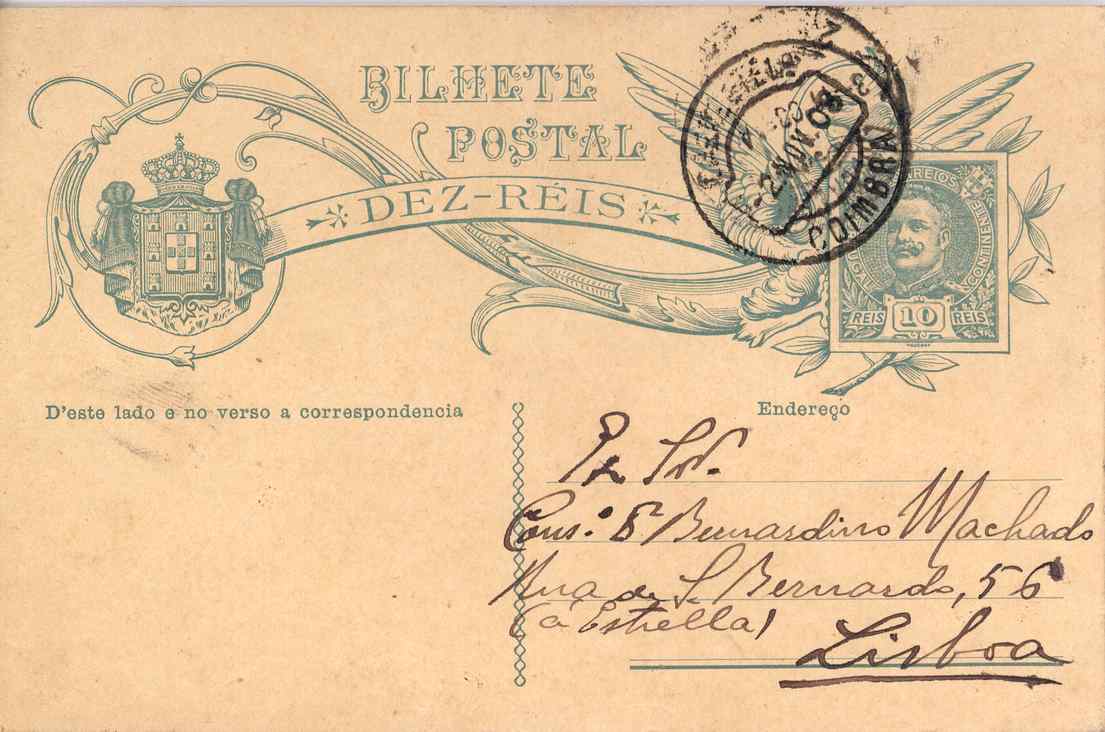 BILHETE
POSTAL
DEZ-RÉIS
2 NOV. 08
COIMBRA
CORREIOS
CONTINENTE
REIS 10 REIS
D'este lado e no verso a correspondencia
Endereço
Sr.
Cons.º Dr Bernardino Machado
Rua de S. Bernardo, 56
(á Estrella)
Lisboa